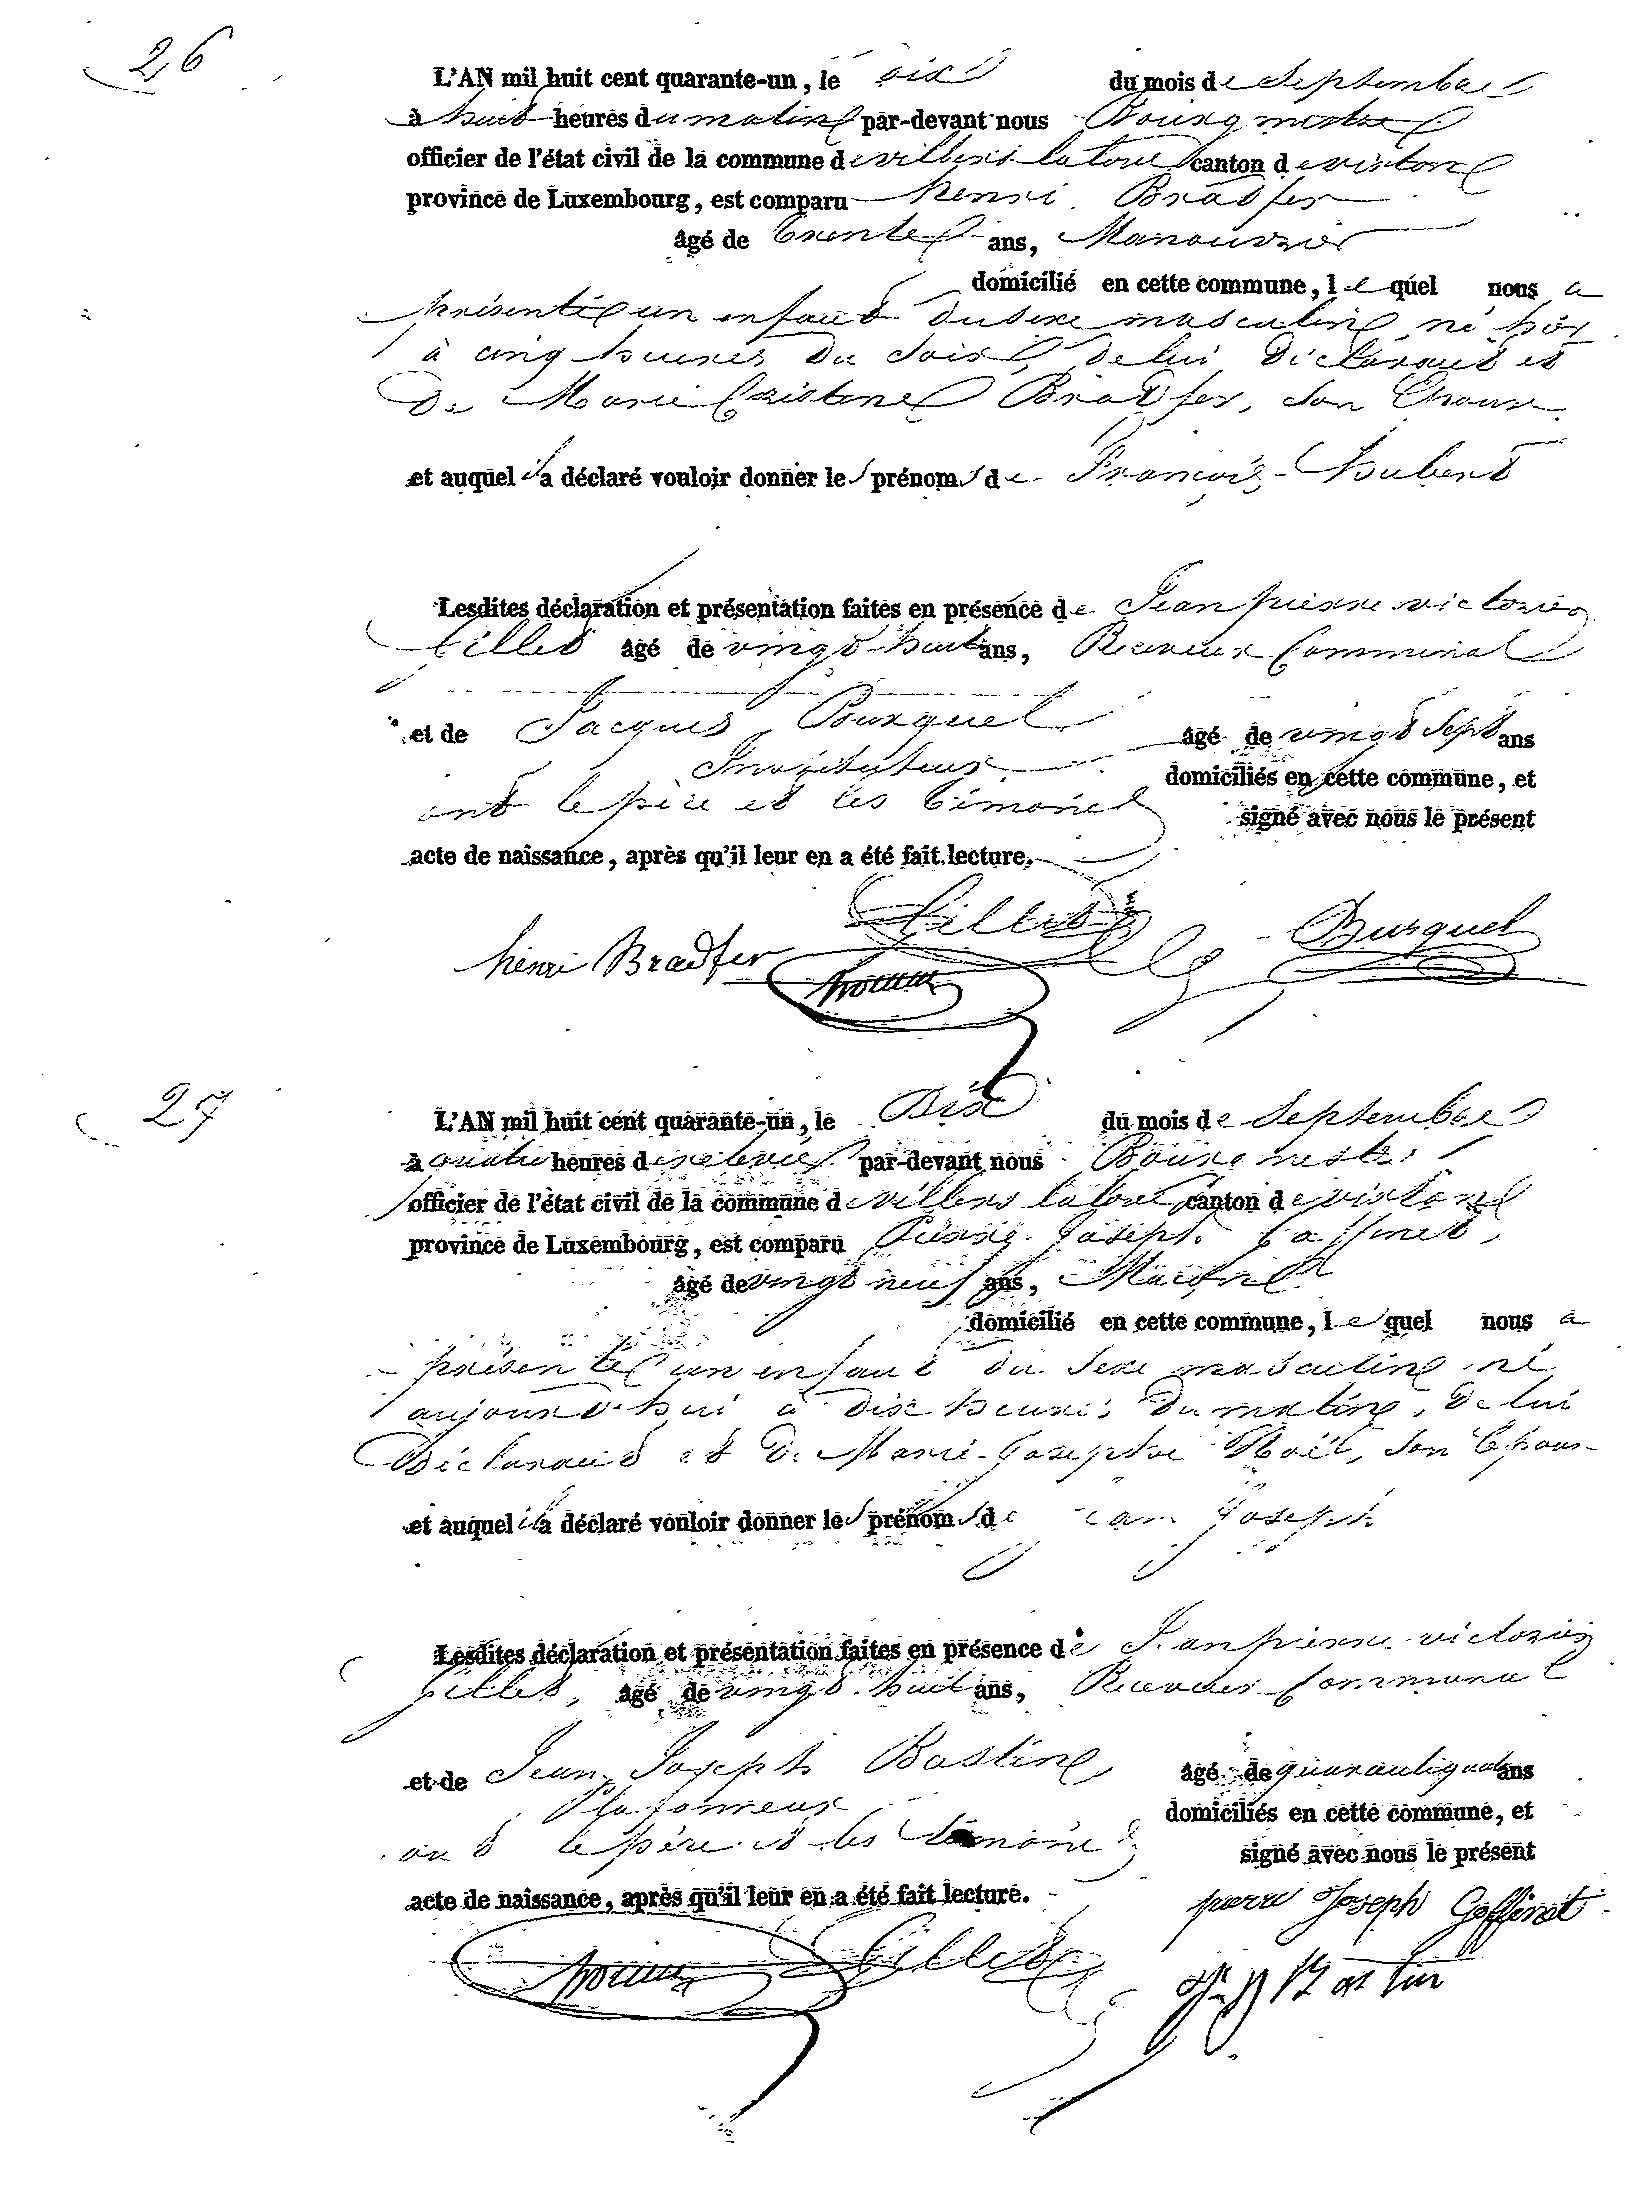 26
L'AN mil huit cent quarante-un, le six du mois de Septembre
à huit heures du matin par-devant nous Bourgmestre
officier de l'état civil de la commune de villers la loue canton de virton
province de Luxembourg, est comparu henri Bradfer
âgé de trente ans, Manouvrier
domicilié en cette commune, lequel nous a
présenté un enfant du sexe masculin né hier
à cinq heures du soir, de lui déclarant et
De Marie Cristine Bradfer, son Epouse
et auquel il a déclaré vouloir donner les prénoms de François-hubert
Lesdites déclaration et présentation faites en présence de Jean pierre victorien
Gillet âgé de vingt-huit ans, Receveur Communal
et de Jacques Burquel âgé de vingt sept ans
Instituteur domiciliés en cette commune, et
ont le père et les témoins signé avec nous le présent
acte de naissance, après qu'il leur en a été fait lecture.
Gillet
Burquel
henri Bradfer
27
L'AN mil huit cent quarante-un, le Dix du mois de Septembre
à quatre heures de relevée par-devant nous Bourgmestre
officier de l'état civil de la commune de villers la loue canton de virton
province de Luxembourg, est comparu Pierre Joseph Gaffinet,
âgé de vingt neuf ans, Maçon
domicilié en cette commune, lequel nous a
présenté un enfant du sexe masculin né
aujourd'hui à dix heures du matin, de lui
Déclarant et de Marie-Josephe Noël, son Epouse
et auquel il a déclaré vouloir donner les prénoms de Jean Joseph
Lesdites déclaration et présentation faites en présence de Jean pierre victorien
Gillet, âgé de vingt-huit ans, Receveur Communal
et de Jean Joseph Bastin, âgé de quarante quatre ans
Plafonneur domiciliés en cette commune, et
ont le père et les témoins signé avec nous le présent
acte de naissance, après qu'il leur en a été fait lecture.
pierre Joseph Gaffinet
Gillet
Bastin